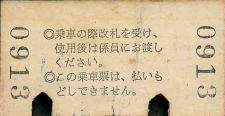 0913
◎乗車の際改札を受け、
使用後は係員にお渡し
ください。
◎この乗車票は、払いも
どしできません。
0913